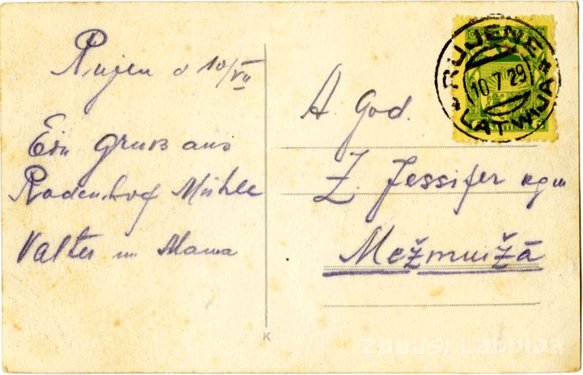 Rujen d 10/VII
Ein Gruss aus
Radenhof Mühle
Valter un Mama
RUJIENA
10.7.29
LATWIJA
A. God.
Z. Jessifer kgm
Mežmuižā
K